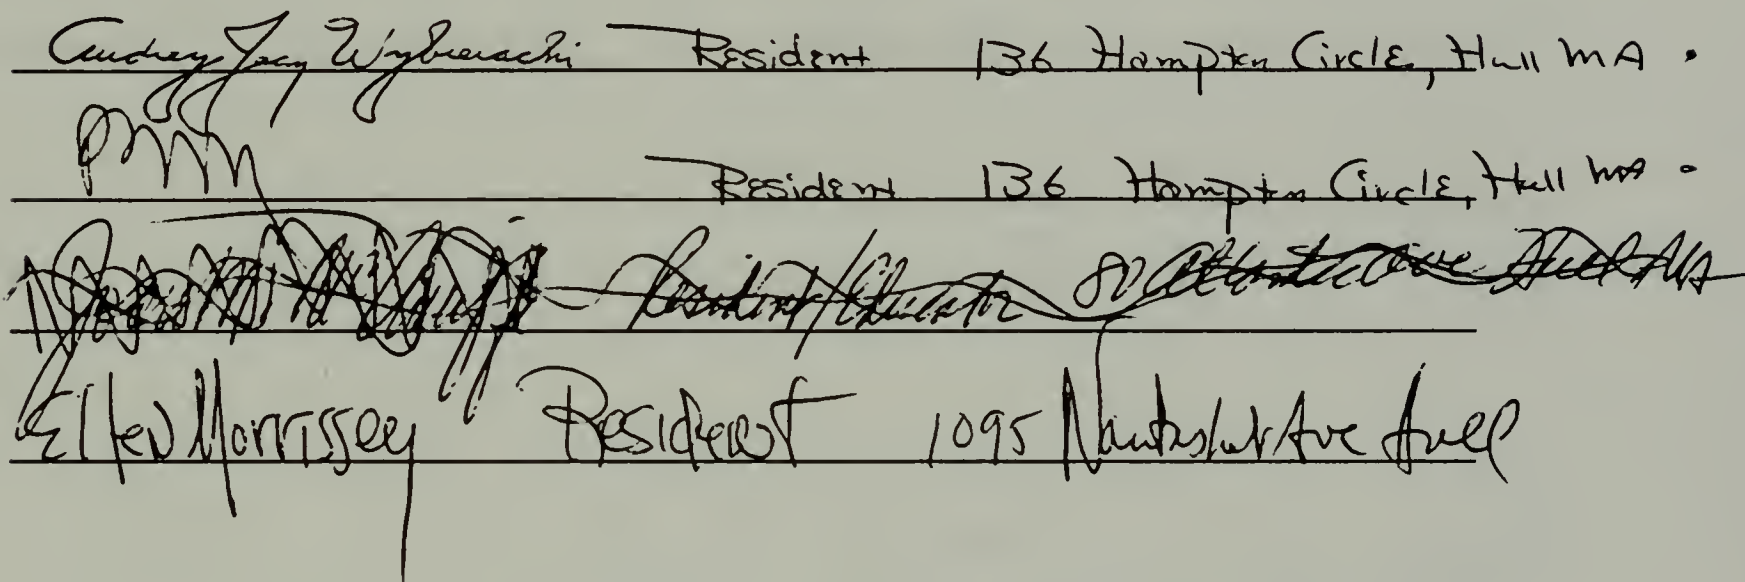 Audrey Joan Resident 136 Hampton Circle, Hull MA .
Resident 136 Hampton Circle, Hull MA .
Resident/Educator 80 Atlantic Ave Hull MA
Ellen Morrissey Resident 1095 Nantasket Ave Hull